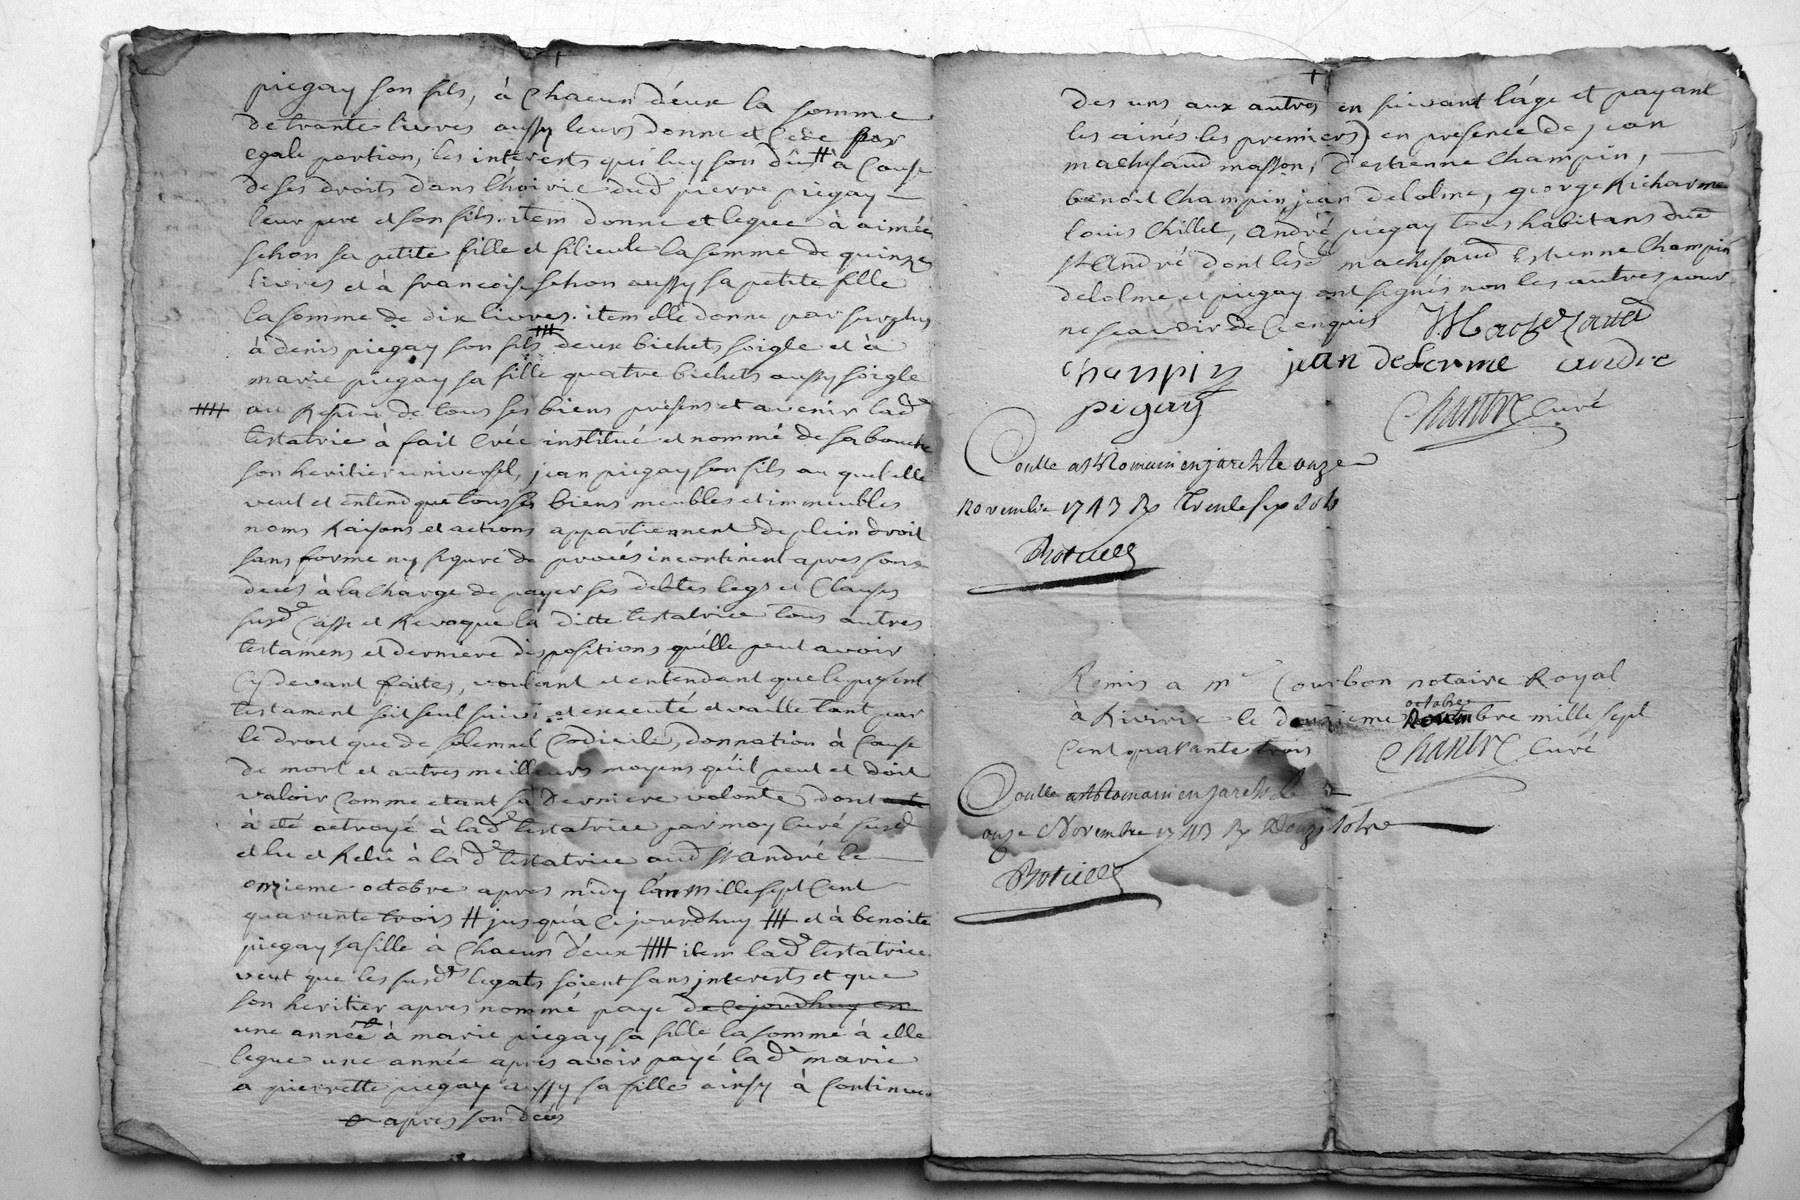 piegay son fils, à Chacun d'eux la somme
de trante livres aussy leurs donne et Cede par
egale portion, les interests qui luy son dûs # à Cause
de ses droits dans l'hoirie dud pierre piegay
leur pere et son fils. item donne et legue à aimée
sehon sa petite fille et filieule la somme de quinze
livres et à francoise sehon aussy sa petite fille
la somme de dix livres. item elle donne par surplus
à denis piegay son fils deux bichets soigle et à
marie piegay sa fille quatre bichets aussy soigle
au Residu de tous ses biens presens et avenir lade
testatrice à fait Créé institué et nommé de sa bouche
son heritier universel, jean piegay son fils au quel elle
veut et entend que tous ses biens meubles et immeubles
noms Raisons et actions appartiennent de plein droit
sans forme ny figure de procés incontinent apres sons
decés à la charge de payer ses debtes legs et Clauses
susde Casse et Revoque la ditte testatrice tous autres
testamens et derniere dispositions qu'elle peut avoir
Cy devant faites, voulant et entendant que le present
testament soit seul suivi et executé et vaille tant par
le droit que de solemnel Codicile, donnation à Cause
de mort et autres meilleurs moyens qu'il peut et doit
valoir Comme etant sa derniere volonté, dont
à eté octroyé à lade testatrice par moy Curé susd
et lu et Relu à la de testatrice aud st andré le
onzieme octobre apres midy l'an mille sept Cent
quarante trois # jusqu'à Ce jourdhuy ## et à benoite
piegay sa fille à Chacun d'eux ### item lade testatrice
veut que les susde legats soient sans interests et que
son heritier apres nommé paye de Cejourdhuy en
une année à marie piegay sa fille la somme à elle
legue une année apres avoir payé lade marie
a pierrette piegay aussy sa fille ainsy à Continuer
apres son decés
des uns aux autres en suivant l'âge et payant
les ainés les premiers) en presence de jean
machefaud masson, d'estienne Champin,
benoit Champin jean delolme, george Richarme
louis Chillet, andré piegay tous habitans dud
st André dont lesd machefaud Estienne Champin
delolme et piegay ont signés non les autres pour
ne scavoir de Ce enquis Machezaud
Chanpin jean delorme andre
pigay
Chantre Curé
Contlle a st Romain en jarest le onze
Novembre 1743 Rx trente six sols
Remis a me Courbon notaire Royal
octobre
à Riverie le douzieme mille sept
Cent quarante trois Chantre Curé
Contlle a st Romain en jarest le
onze Novembre 1743 Rx Douze sols